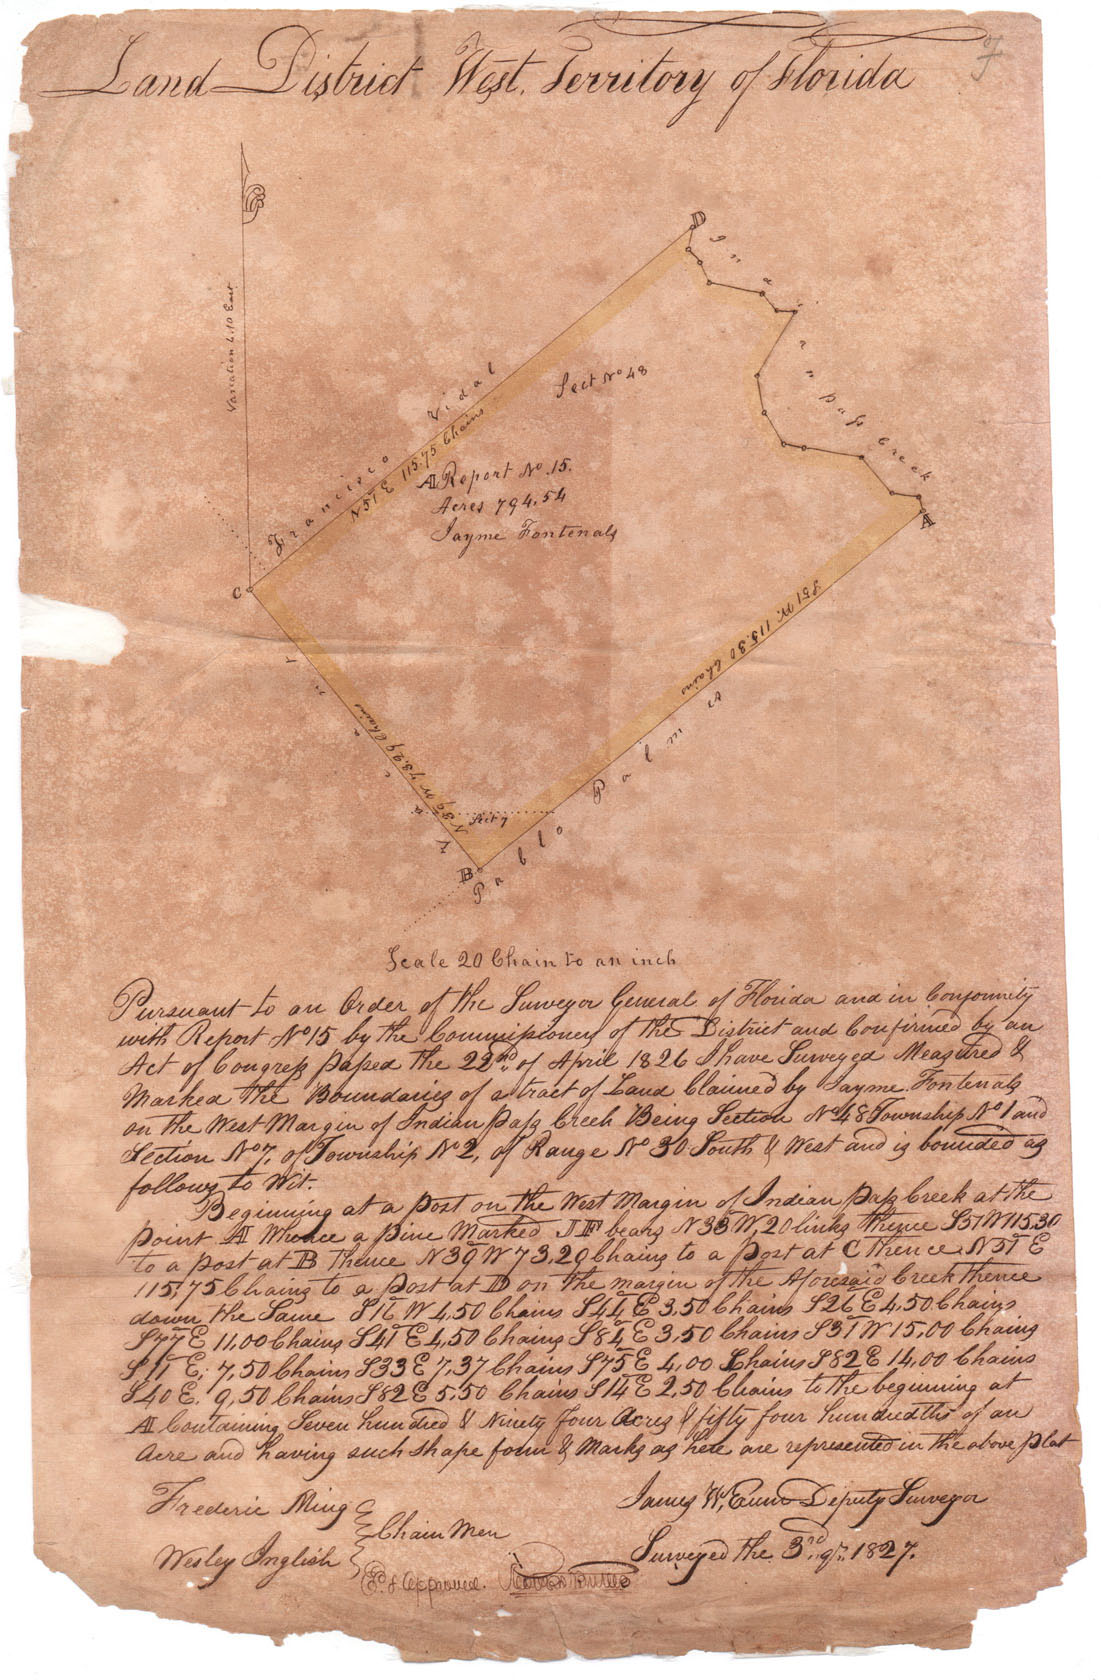 Land District West. Territory of Florida
Variation 6.10 East
D
Indian pass Creek
Francisco Vidal
N 51 E 115.75 Chains
Sect No 48
A Report No. 15.
Acres 794.54
Jayme Fontenals
A
C
S51 W. 115.30 Chains
Vacant
N 39 W 73.29 Chains
Pablo Palmes
Sect 7
B
Scale 20 Chain to an inch
Pursuant to an Order of the Surveyor General of Florida and in Conformity
with Report No 15 by the Commissioners of the District and Confirmed by an
Act of Congress passed the 22nd of April 1826 I have Surveyed Measured &
Marked the Boundaries of a tract of Land Claimed by Jayme Fontenals
on the West Margin of Indian pass Creek Being Section No 48 Township No 1 and
Section No 7, of Township No 2, of Range No 30 South & West and is bounded as
follows to Wit.
Beginning at a post on the West Margin of Indian pass Creek at the
point A Whence a pine Marked J F bears N 33 W, 20 links thence S51 W 115.30
to a post at B thence N 39 W 73,29 Chains to a post at C thence N 51 E
115,75 Chains to a post at D on the margin of the Aforesaid Creek thence
down the Same S16 W 4,50 Chains S44 E 3,50 Chains S26 E 4,50 Chains
S77 E 11,00 Chains S41 E 4,50 Chains S84 E 3,50 Chains S31 W 15,00 Chains
S11 E; 7,50 Chains S33 E 7,37 Chains S75 E 4,00 Chains S82 E 14,00 Chains
S40 E. 9,50 Chains S82 E 5,50 Chains S14 E 2,50 Chains to the beginning at
A Containing Seven hundred & Ninety four Acres & fifty four hundredths of an
Acre and having such shape form & Marks as here are represented in the above plat
Frederic Ming
Chain Men
Wesley Inglish
James W, Exum Deputy Surveyor
Surveyed the 3rd qr. 1827.
Ex & Approved. Robert Butler